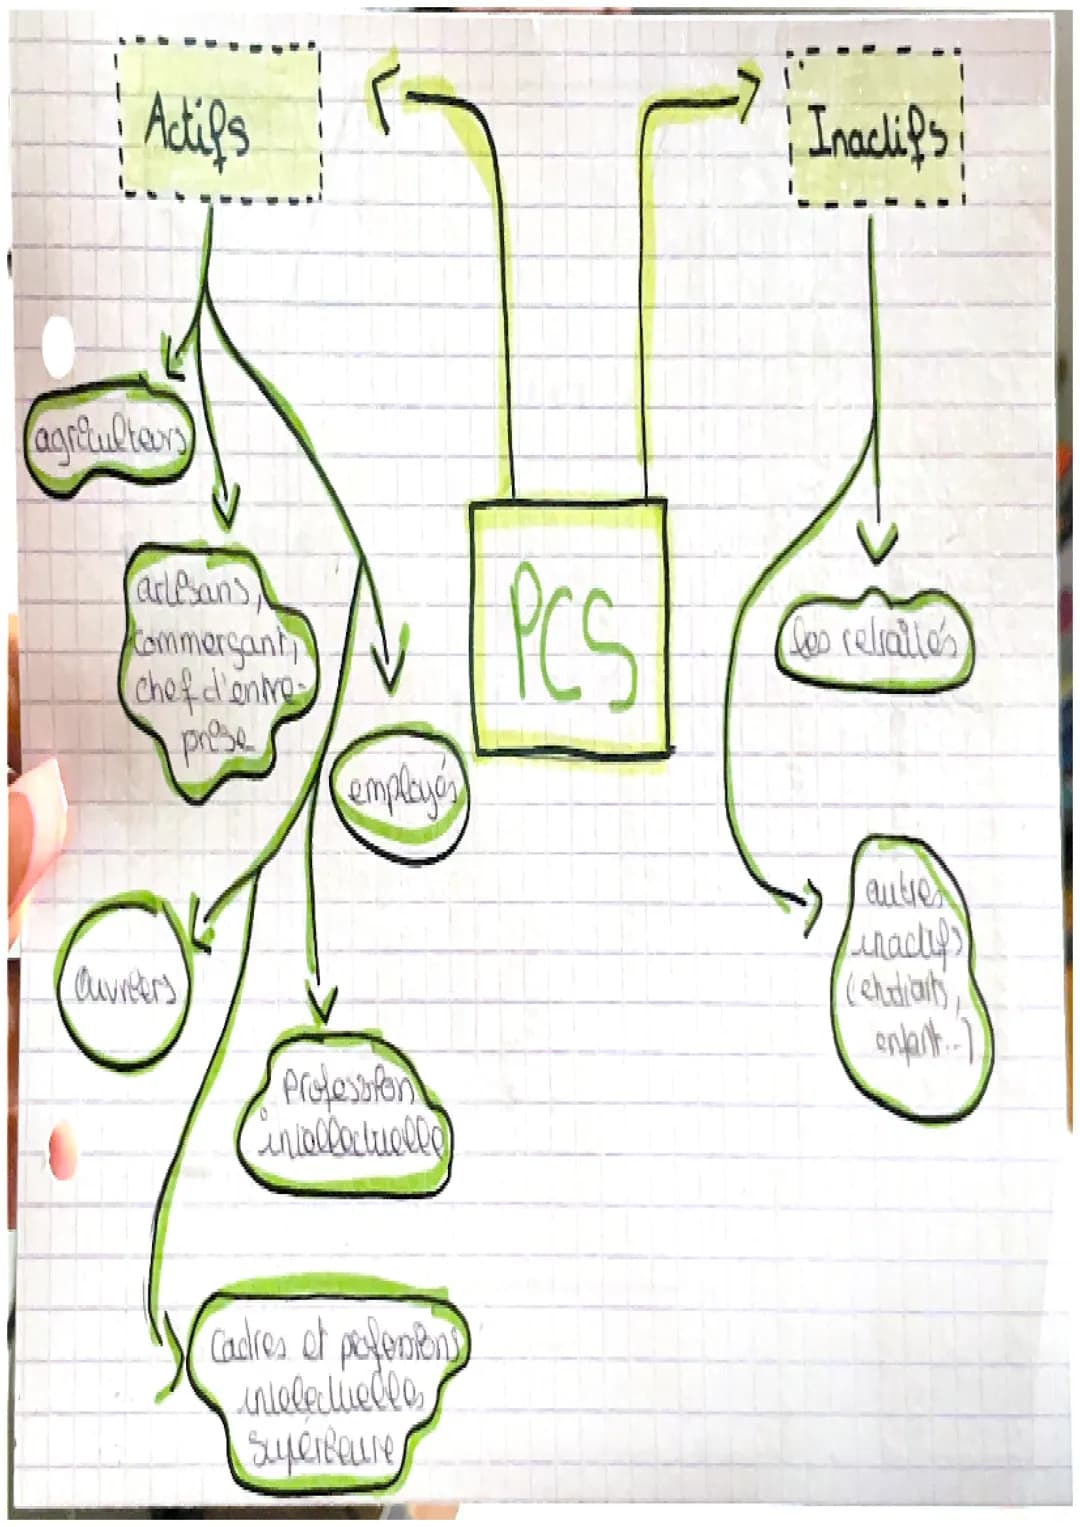 Actifs
Inactifs
PCS
agriculteurs
artisans,
commerçant,
chef d'entre-
prise
employés
ouvriers
Profession
intellectuelle
Cadres et professions
intelectuelles
supérieure
les retraités
autres
inactifs
(etudiants,
enfant...)